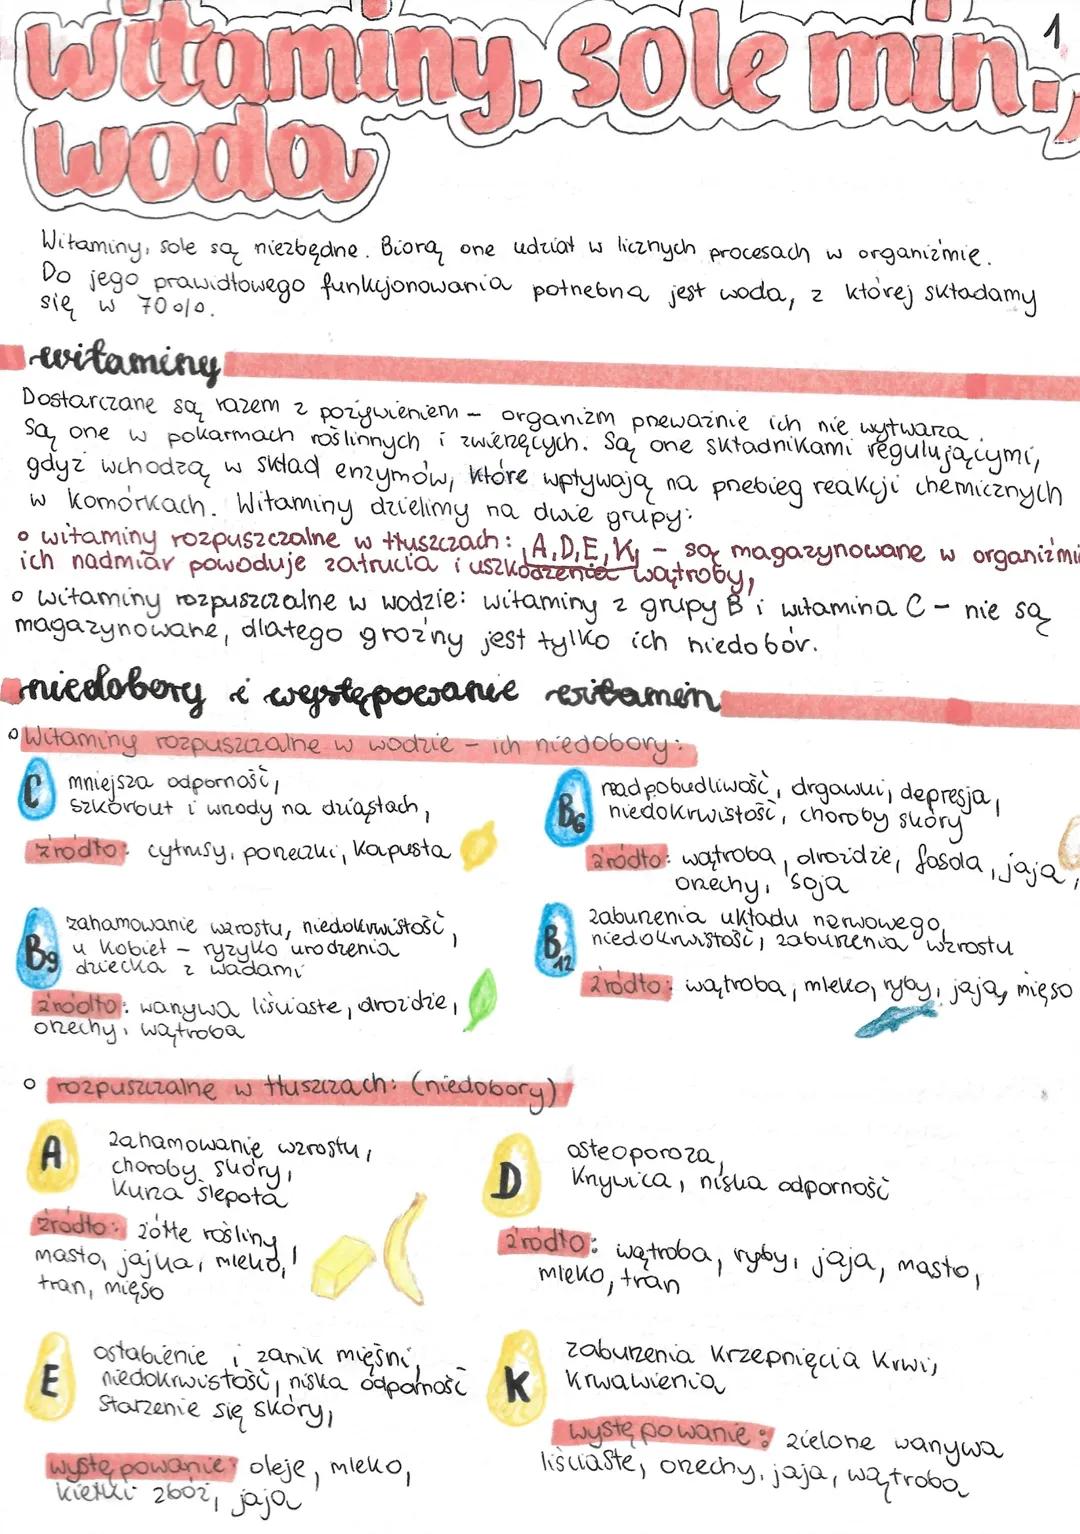 1
witaminy, sole min.,
woda
Witaminy, sole są niezbędne. Biorą one udział w licznych procesach w organizmie.
Do jego prawidłowego funkcjonowania potrzebna jest woda, z której składamy
się w 70%.
witaminy
Dostarczane są razem z pożywieniem - organizm przeważnie ich nie wytwarza.
Są one w pokarmach roślinnych i zwierzęcych. Są one składnikami regulującymi,
gdyż wchodzą w skład enzymów, które wpływają na przebieg reakcji chemicznych
w komórkach. Witaminy dzielimy na dwie grupy:
o witaminy rozpuszczalne w tłuszczach: A, D, E, K, - są magazynowane w organizmi
ich nadmiar powoduje zatrucia i uszkodzenia wątroby,
o witaminy rozpuszczalne w wodzie: witaminy z grupy B i witamina C - nie są
magazynowane, dlatego groźny jest tylko ich niedobór.
niedobory i występowanie witamin
o Witaminy rozpuszczalne w wodzie - ich niedobory:
C mniejsza odporność,
szkorbut i wrzody na dziąsłach,
źródło: cytrusy, porzeczki, kapusta
B6 nadpobudliwość, drgawki, depresja,
niedokrwistość, choroby skóry
źródło: wątroba, drożdże, fasola, jaja,
orzechy, soja
B9 zahamowanie wzrostu, niedokrwistość,
u kobiet - ryzyko urodzenia
dziecka z wadami
źródło: warzywa liściaste, drożdże,
orzechy, wątroba
B12 zaburzenia układu nerwowego,
niedokrwistość, zaburzenia wzrostu
źródło: wątroba, mleko, ryby, jaja, mięso
o rozpuszczalne w tłuszczach: (niedobory)
A zahamowanie wzrostu,
choroby skóry,
kurza ślepota
źródło: żółte rośliny,
masło, jajka, mleko,
tran, mięso
D osteoporoza,
krzywica, niska odporność
źródło: wątroba, ryby, jaja, masło,
mleko, tran
E osłabienie i zanik mięśni,
niedokrwistość, niska odporność
starzenie się skóry,
występowanie: oleje, mleko,
kiełki zbóż, jaja
K zaburzenia krzepnięcia krwi,
krwawienia
występowanie: zielone warzywa
liściaste, orzechy, jaja, wątroba